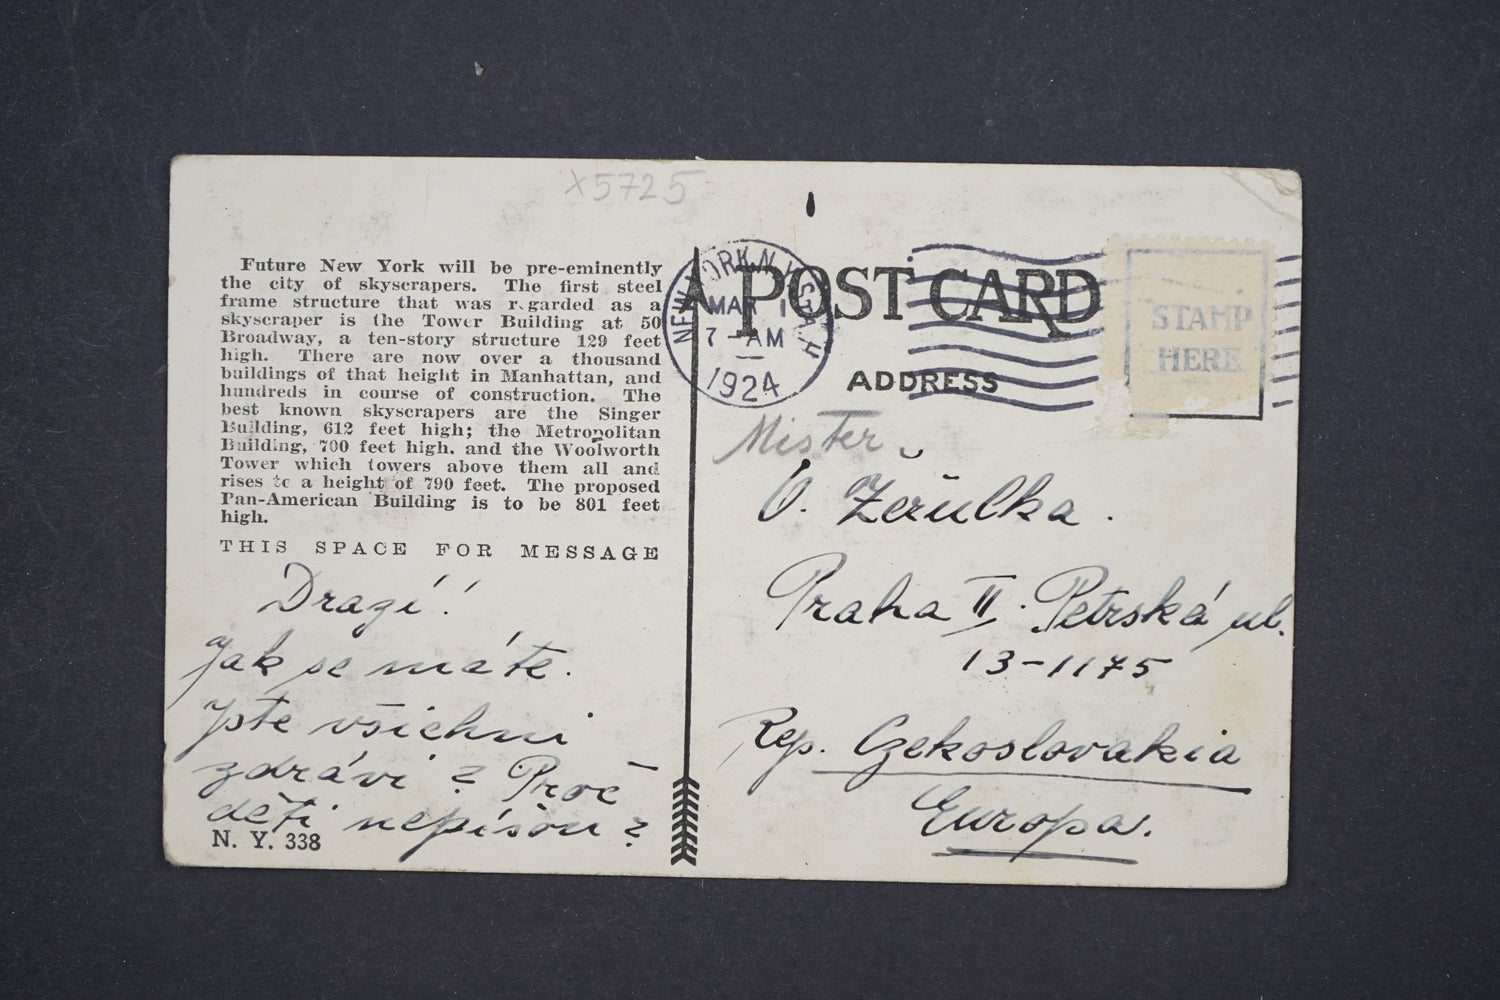 X5725
Future New York will be pre-eminently
the city of skyscrapers. The first steel
frame structure that was regarded as a
skyscraper is the Tower Building at 50
Broadway, a ten-story structure 129 feet
high. There are now over a thousand
buildings of that height in Manhattan, and
hundreds in course of construction. The
best known skyscrapers are the Singer
Building, 612 feet high; the Metropolitan
Building, 700 feet high, and the Woolworth
Tower which towers above them all and
rises to a height of 790 feet. The proposed
Pan-American Building is to be 801 feet
high.
THIS SPACE FOR MESSAGE
Drazí!
Jak se máte.
Jste všichni
zdrávi? Proč
děti nepíšou?
N. Y. 338
NEW YORK, N.Y. STA.
MAR 1
7 - AM
1924
POST CARD
ADDRESS
STAMP
HERE
Mister
O.
Praha II. Petrská ul.
13-1175
Rep. Czekoslovakia
Europa.